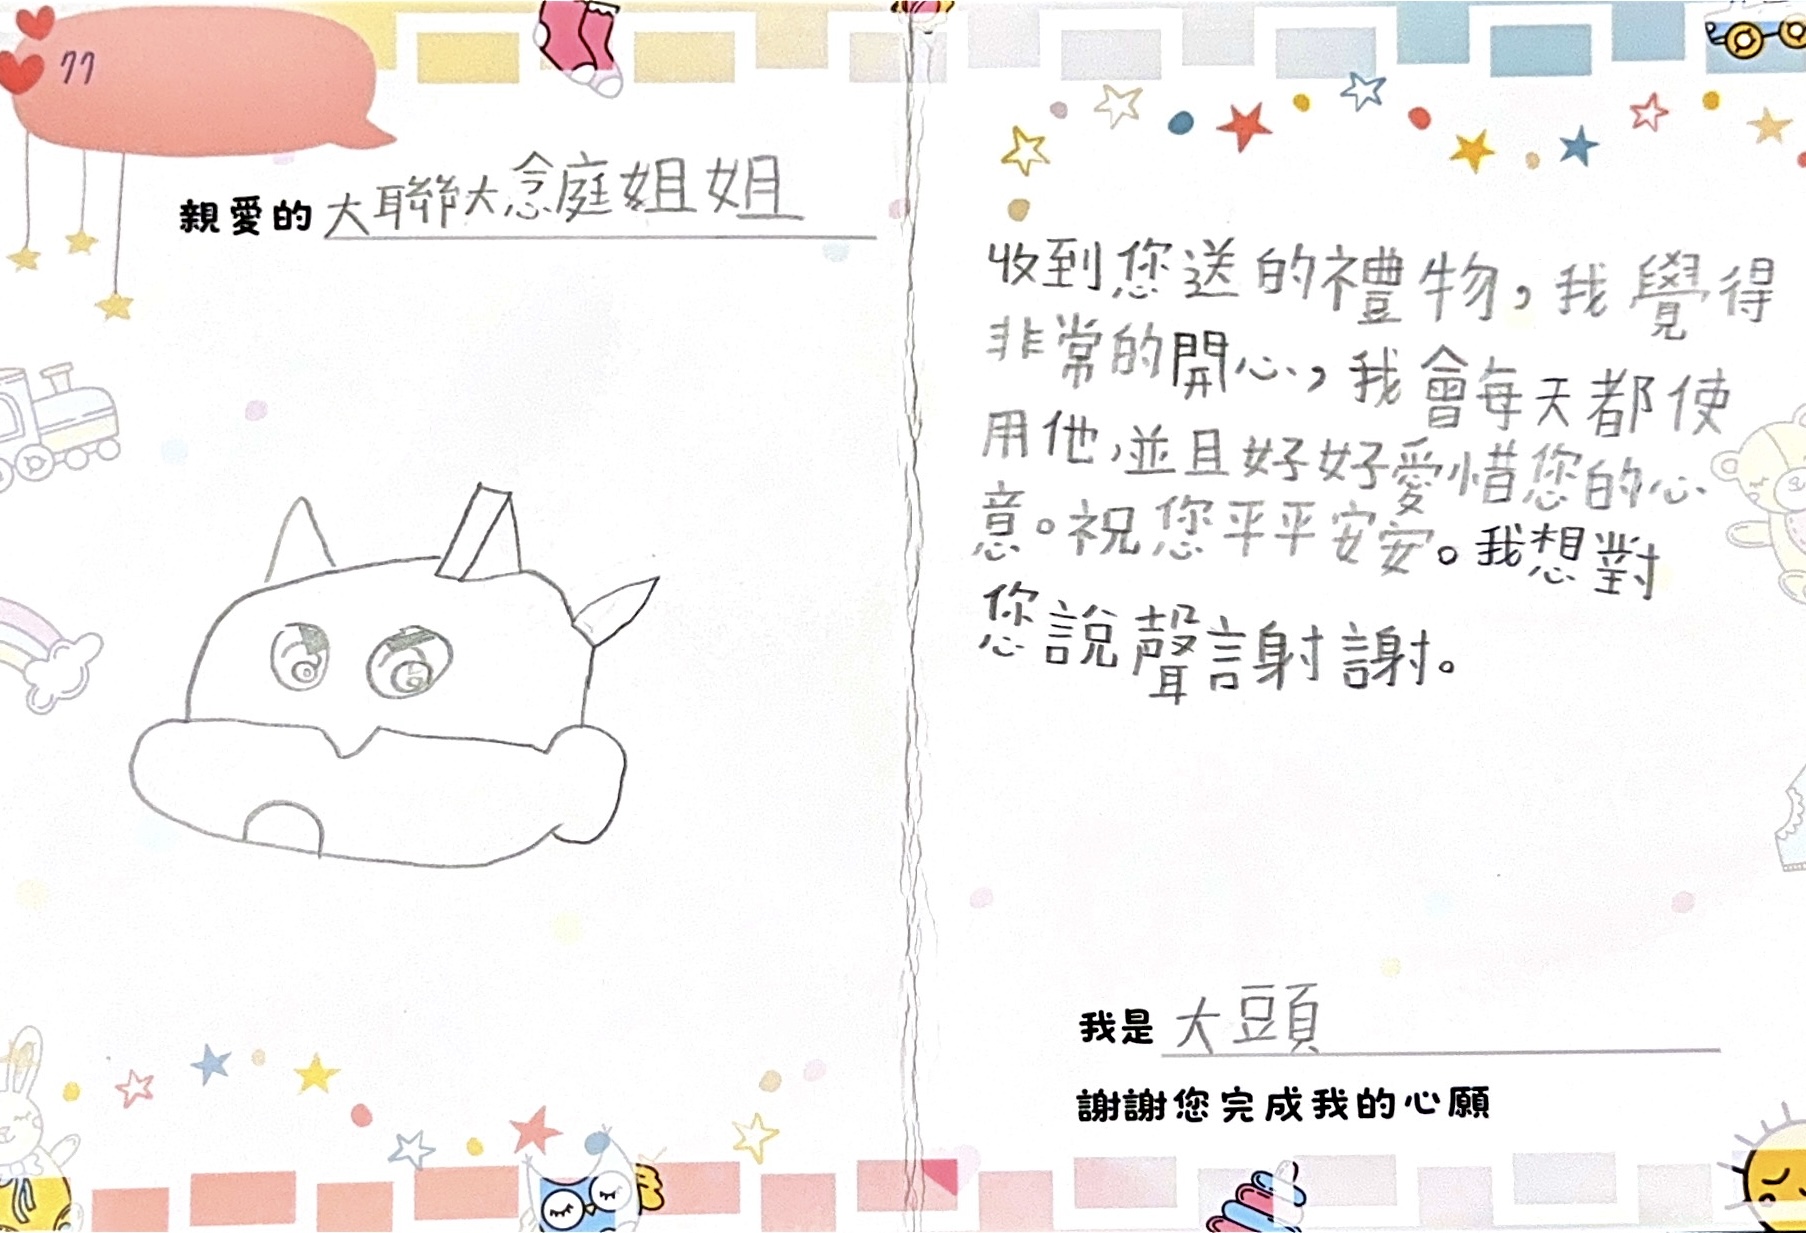 77
親愛的 大聯大念庭姐姐
收到您送的禮物，我覺得
非常的開心，我會每天都使
用他，並且好好愛惜您的心
意。祝您平平安安。我想對
您說聲謝謝。
我是 大豆頁
謝謝您完成我的心願